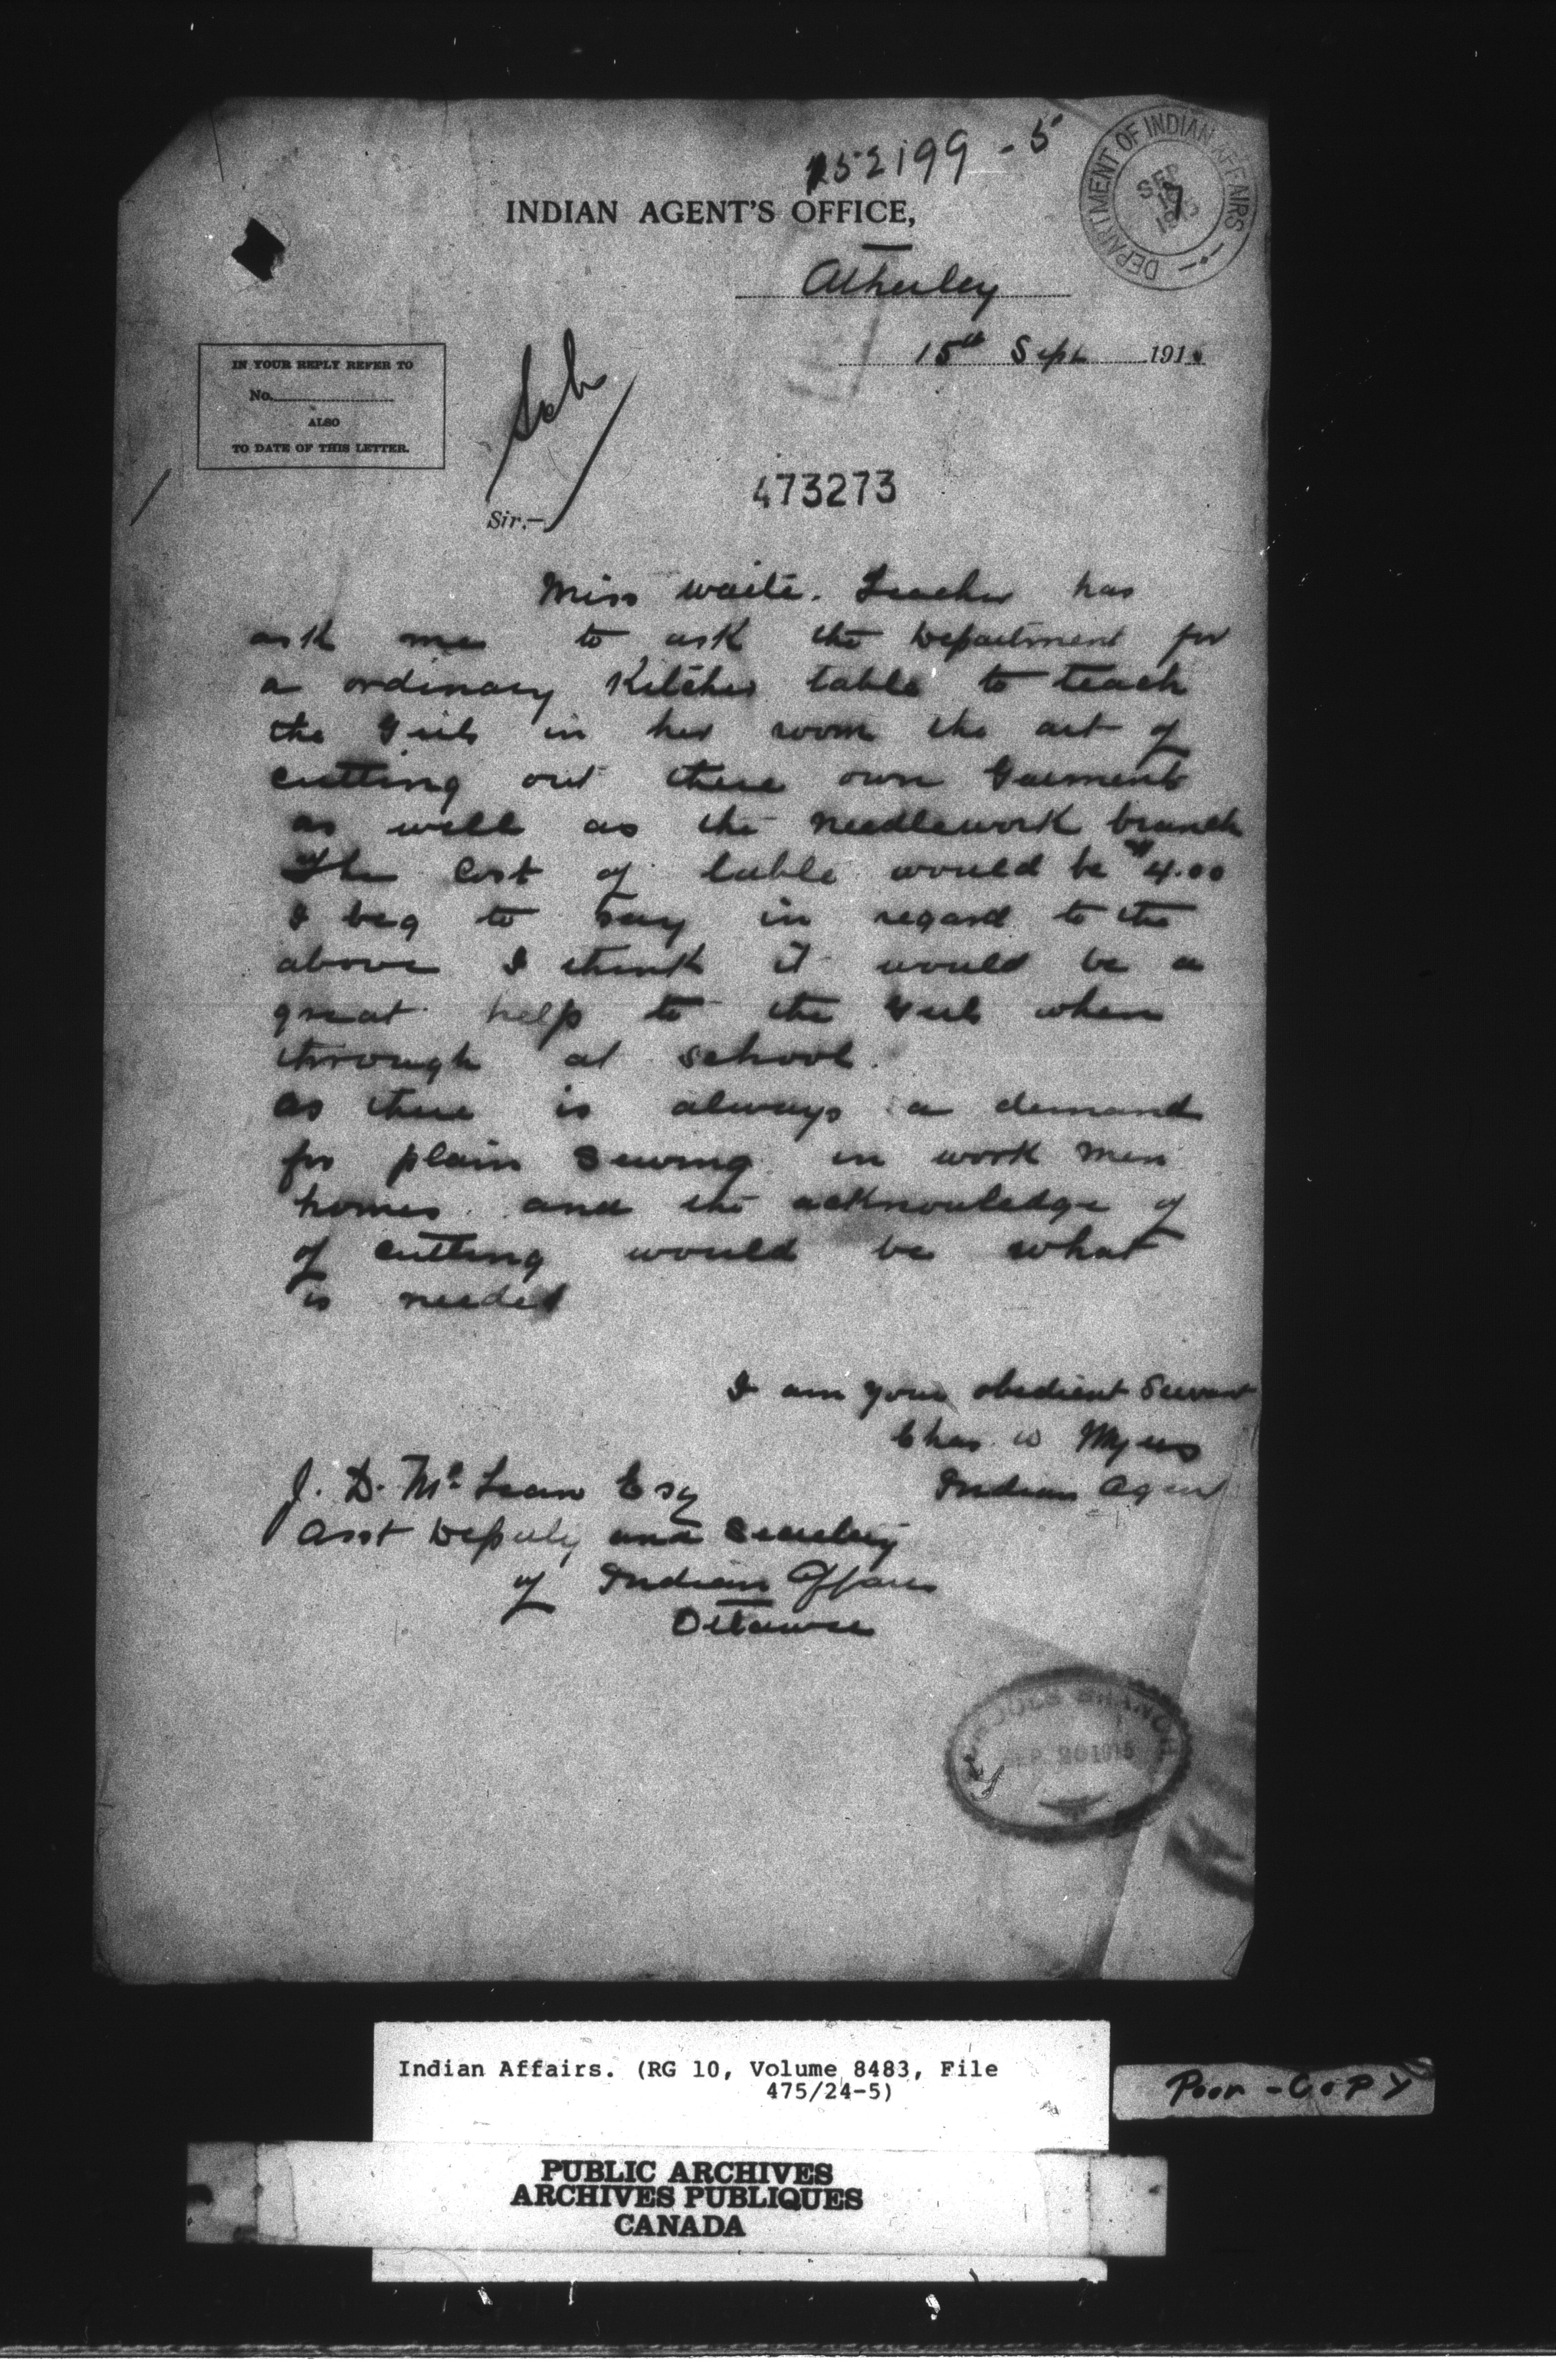 252199-5
DEPARTMENT OF INDIAN AFFAIRS
SEP 17 1915
INDIAN AGENT'S OFFICE,
Atherley
15th Sept 191
IN YOUR REPLY REFER TO
No.
ALSO
TO DATE OF THIS LETTER.
Sch
473273
Sir,—
Miss Waite. Teacher has
ask me to ask the Department for
a ordinary Kitchen table to teach
the Girls in her room the art of
cutting out there own Garments
as well as the needlework branch
The Cost of table would be $4.00
I beg to say in regard to the
above I think it would be a
great help to the Girls when
through at school.
as there is always a demand
for plain Sewing in work men
homes and the acknowledge of
of cutting would be what
is needed
I am your obedient Servant
Chas W Myers
Indian Agent
J. D. McLean Esq
Asst Deputy and Secretary
of Indian Affairs
Ottawa
SCHOOLS BRANCH
SEP. 20 1915
Indian Affairs. (RG 10, Volume 8483, File
475/24-5)
Poor-COPY
PUBLIC ARCHIVES
ARCHIVES PUBLIQUES
CANADA